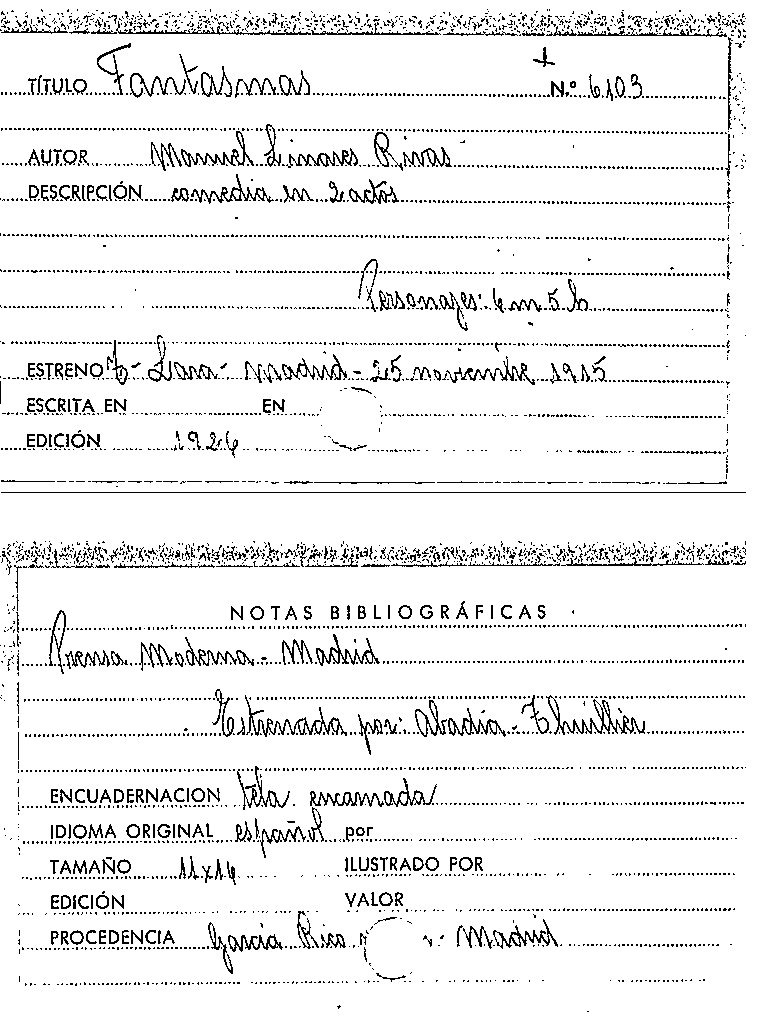 TÍTULO Fantasmas N.º 6103
AUTOR Manuel Linares Rivas
DESCRIPCIÓN comedia en 2 actos
Personajes: 6 m 5 h
ESTRENO T- Lara- Madrid- 25 noviembre 1915
ESCRITA EN EN
EDICIÓN 1926
NOTAS BIBLIOGRÁFICAS
Prensa Moderna- Madrid
Estrenada por: Abadía- Thuillier
ENCUADERNACION tela encarnada
IDIOMA ORIGINAL español por
TAMAÑO 11x16 ILUSTRADO POR
EDICIÓN VALOR
PROCEDENCIA García Rico - Madrid